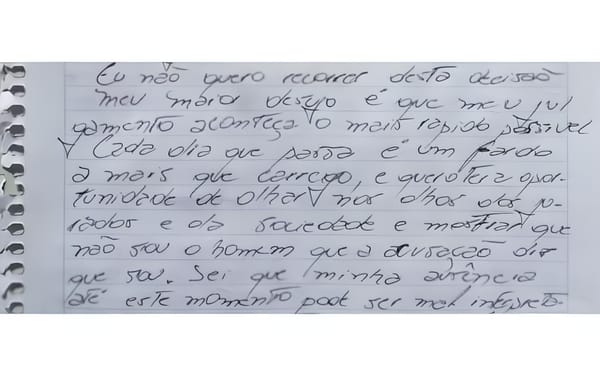 Eu não quero recorrer desta decisão
meu maior desejo é que meu jul
gamento aconteça o mais rápido possível
Cada dia que passa é um fardo
a mais que carrego, e quero ter a opor-
tunidade de olhar nos olhos dos ju-
rados e da sociedade e mostrar que
não sou o homem que a acusação diz
que sou. Sei que minha ausência
até este momento pode ser mal interpreta-